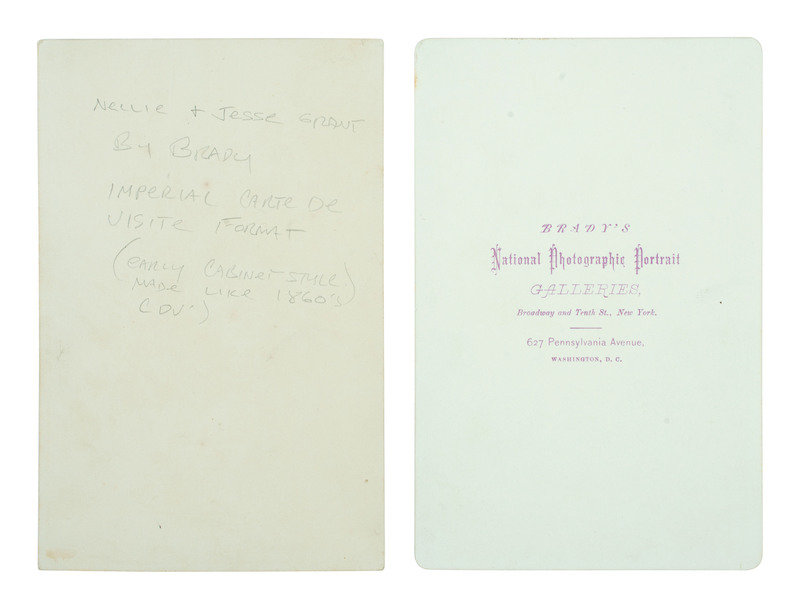 Nellie + Jesse Grant
By Brady
Imperial Carte de
Visite Format
(early Cabinet style)
made like 1860's
CDV's)
BRADY'S
National Photographic Portrait
GALLERIES,
Broadway and Tenth St., New York.
627 Pennsylvania Avenue,
WASHINGTON, D. C.